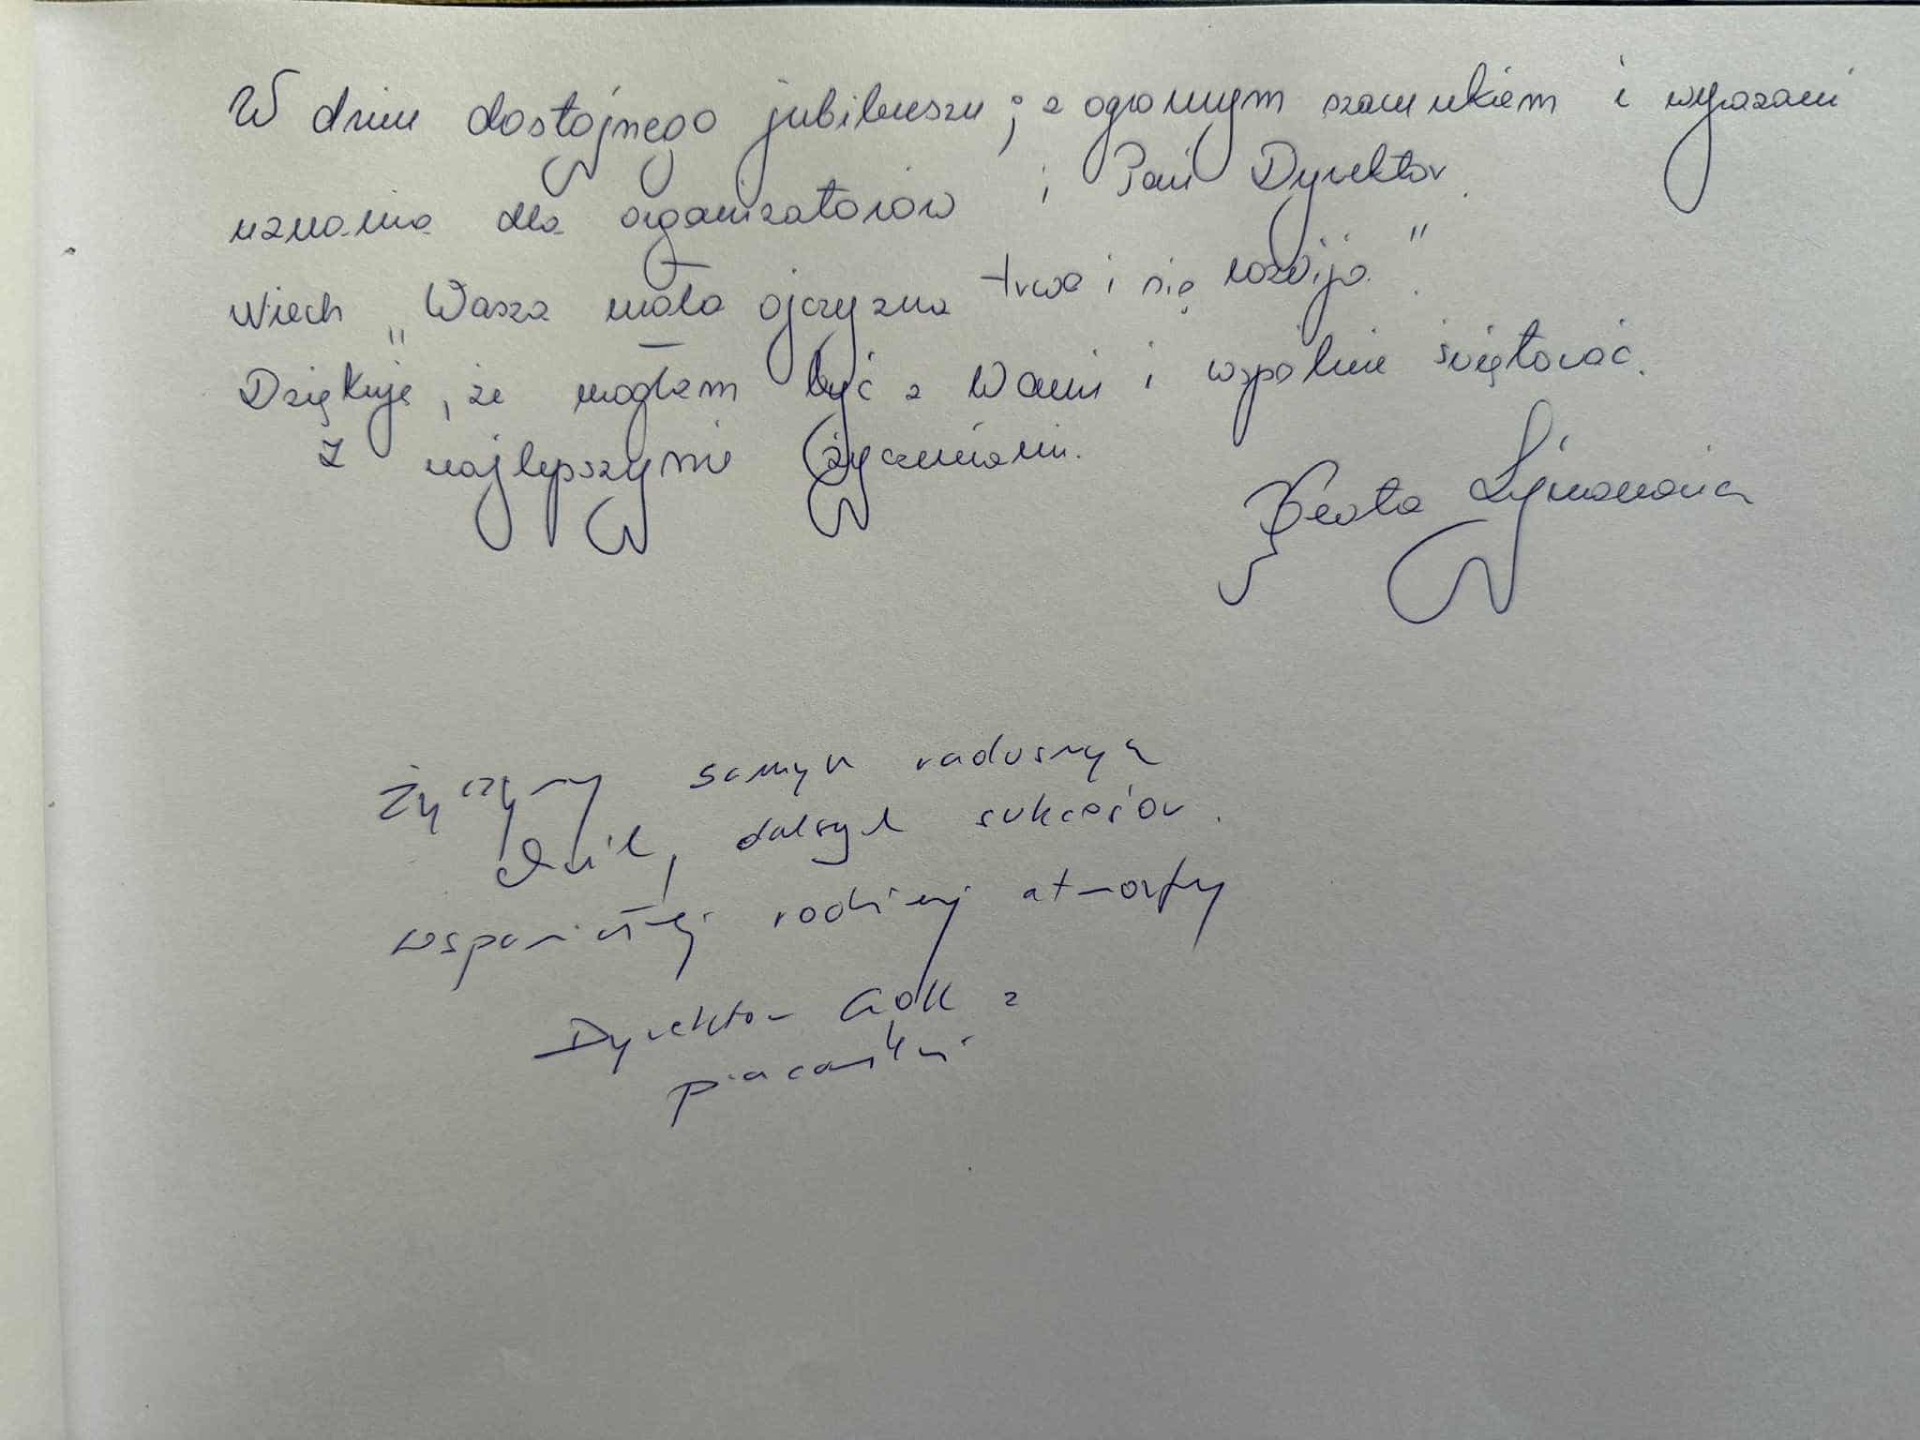 W dniu dostojnego jubileuszu; z ogromnym szacunkiem i wyrazami
uznania dla organizatorów i Pani Dyrektor.
Niech „Wasza mała ojczyzna trwa i się rozwija".
Dziękuję, że mogłam być z Wami i wspólnie świętować.
Z najlepszymi życzeniami.
Beata
Życzymy samych radosnych
chwil, dalszych sukcesów.
wspaniałej rodzinnej atmosfery
Dyrektor GOK z
pracownikami